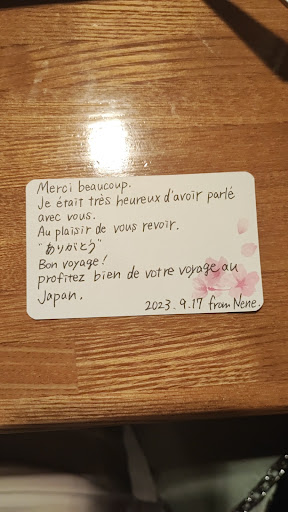 Merci beaucoup.
Je était très heureux d'avoir parlé
avec vous.
Au plaisir de vous revoir.
"ありがとう"
Bon voyage!
profitez bien de votre voyage au
Japan.
2023.9.17 from Nene.